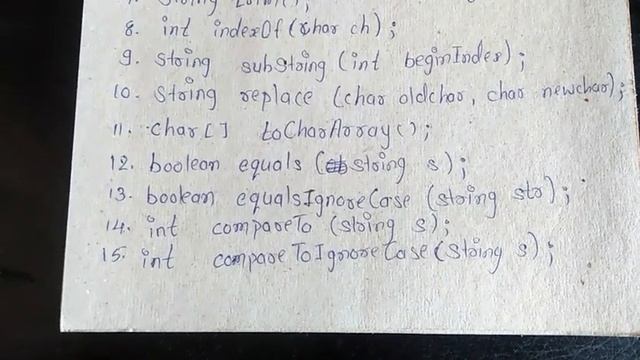 8. int indexOf(char ch);
9. string subString (int beginIndex);
10. String replace (char oldchar, char newchar);
11. char[] toCharArray();
12. boolean equals (string s);
13. boolean equalsIgnoreCase (string str);
14. int compareTo (string s);
15. int compareToIgnoreCase(string s);